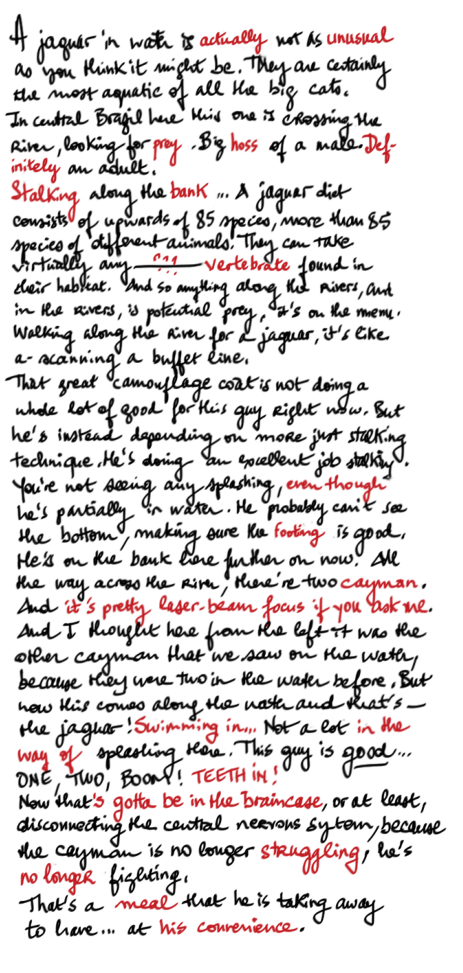 A jaguar in water is actually not as unusual
as you think it might be. They are certainly
the most aquatic of all the big cats.
In central Brazil here this one is crossing the
River, looking for prey. Big hoss of a male. Def-
initely an adult.
Stalking along the bank ... A jaguar diet
consists of upwards of 85 speces, more than 85
species of different animals. They can take
virtually any ??? vertebrate found in
their habitat. And so anything along the rivers, and
in the rivers, is potential prey, it's on the menu.
Walking along the River for a jaguar, it's like
a- scanning a buffet line.
That great camouflage coat is not doing a
whole lot of good for this guy right now. But
he's instead depending on more just stalking
technique. He's doing an excellent job stalking.
You're not seeing any splashing, even though
he's partially in water. He probably can't see
the bottom, making sure the footing is good.
He's on the bank here further on now. All
the way across the River, there're two cayman.
And it's pretty laser-beam focus if you ask me.
And I thought here from the left it was the
other cayman that we saw on the water,
because they were two in the water before. But
now this comes along the water and that's –
the jaguar! Swimming in... Not a lot in the
way of splashing there. This guy is good...
ONE, TWO, BOOM! TEETH IN!
Now that's gotta be in the braincase, or at least,
disconnecting the central nervous sytem, because
the cayman is no longer struggling, he's
no longer fighting.
That's a meal that he is taking away
to have... at his convenience.